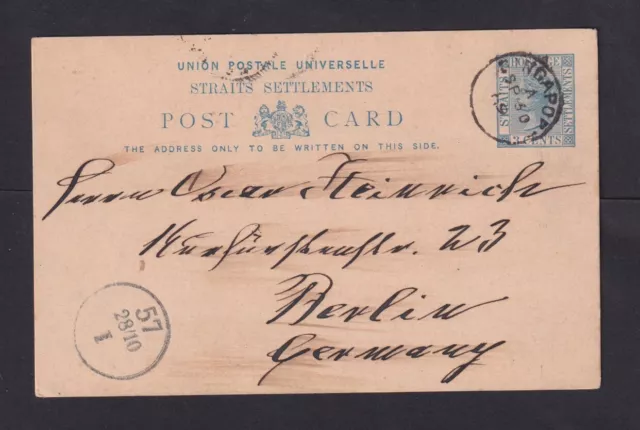 UNION POSTALE UNIVERSELLE
STRAITS SETTLEMENTS
POST CARD
THE ADDRESS ONLY TO BE WRITTEN ON THIS SIDE.
3 CENTS
SINGAPORE
A
SP 30
Herrn Oscar Heinrich
Kurfürstenstr. 23
Berlin
Germany
57
28/10
I